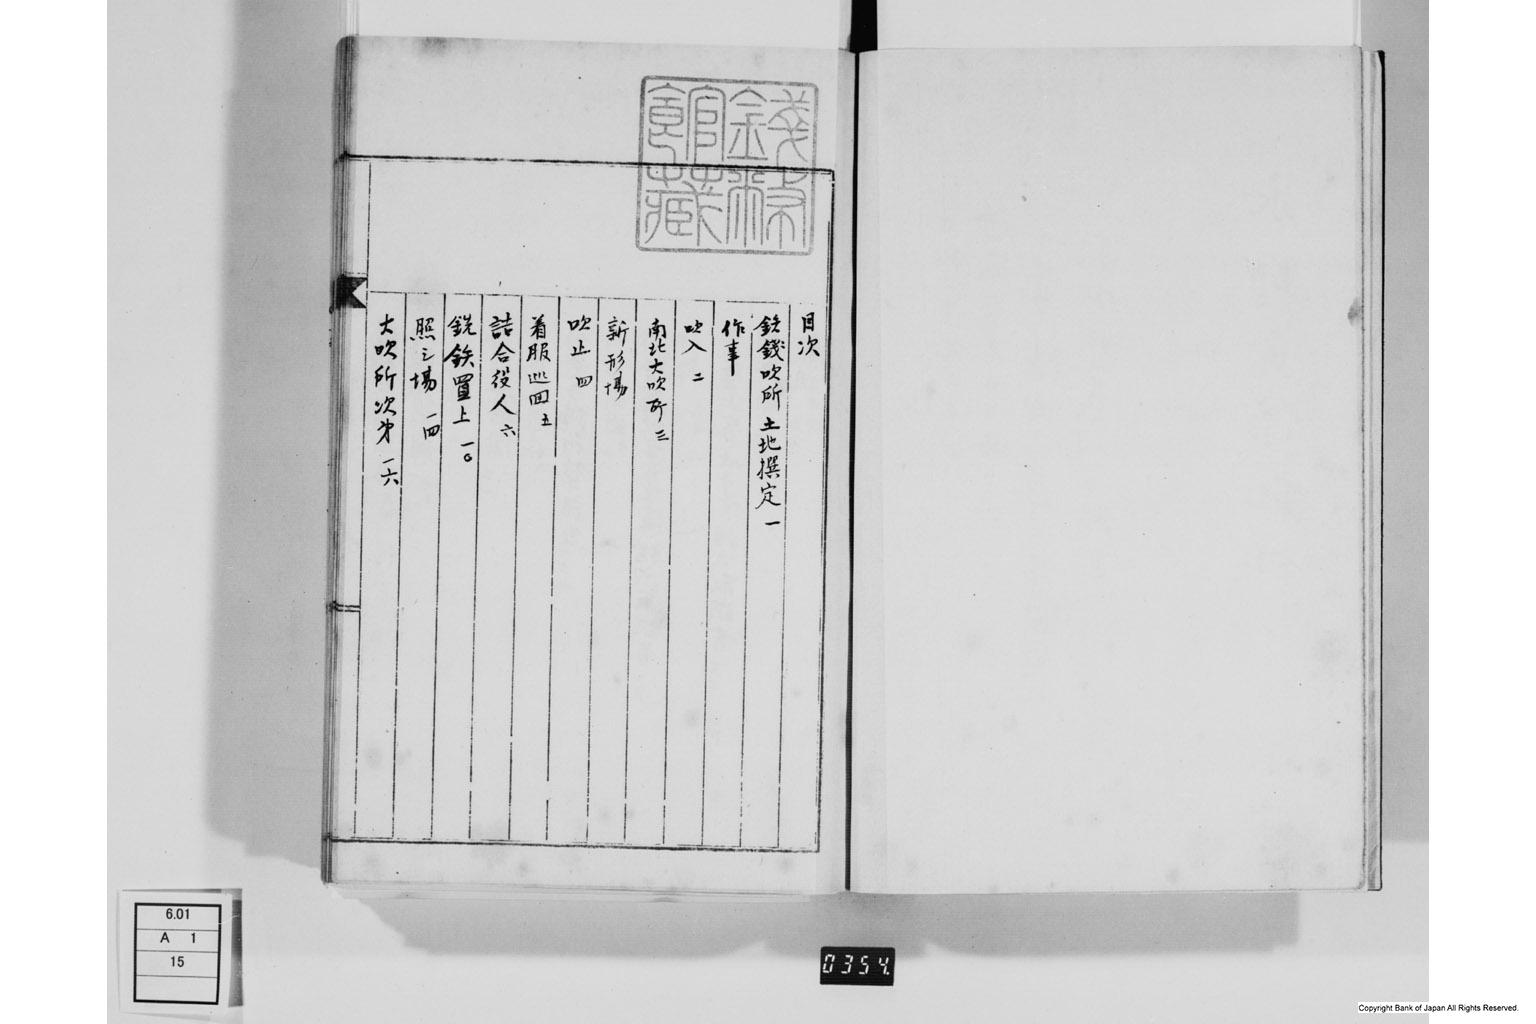 目次
鉄錢吹所土地撰定 一
作事
吹入 二
南北大吹所 三
新形場
吹止 四
着服巡回 五
詰合役人 六
銑鉄置上 一〇
照之場 一四
大吹所次第 一六
錢幣館藏
6.01
A 1
15
0354
Copyright Bank of Japan All Rights Reserved.